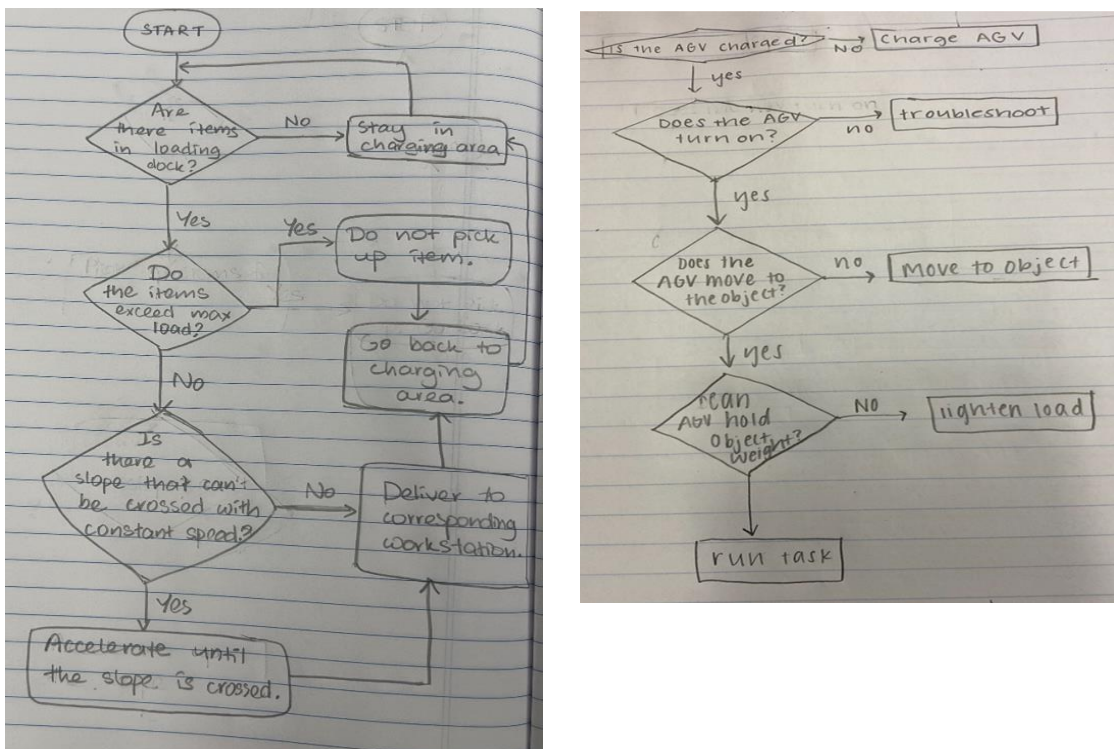 START
Are
there items
in loading
dock?
No
Stay in
charging area
Yes
Do
the items
exceed max
load?
Yes
Do not pick
up item.
Go back to
charging
area.
No
Is
there a
slope that can't
be crossed with
constant speed?
No
Deliver to
corresponding
workstation.
Yes
Accelerate until
the slope is crossed.
Is the AGV charged?
NO
Charge AGV
yes
Does the AGV
turn on?
no
troubleshoot
yes
Does the
AGV move to
the object?
no
Move to object
yes
can
AGV hold
object
weight?
NO
lighten load
run task